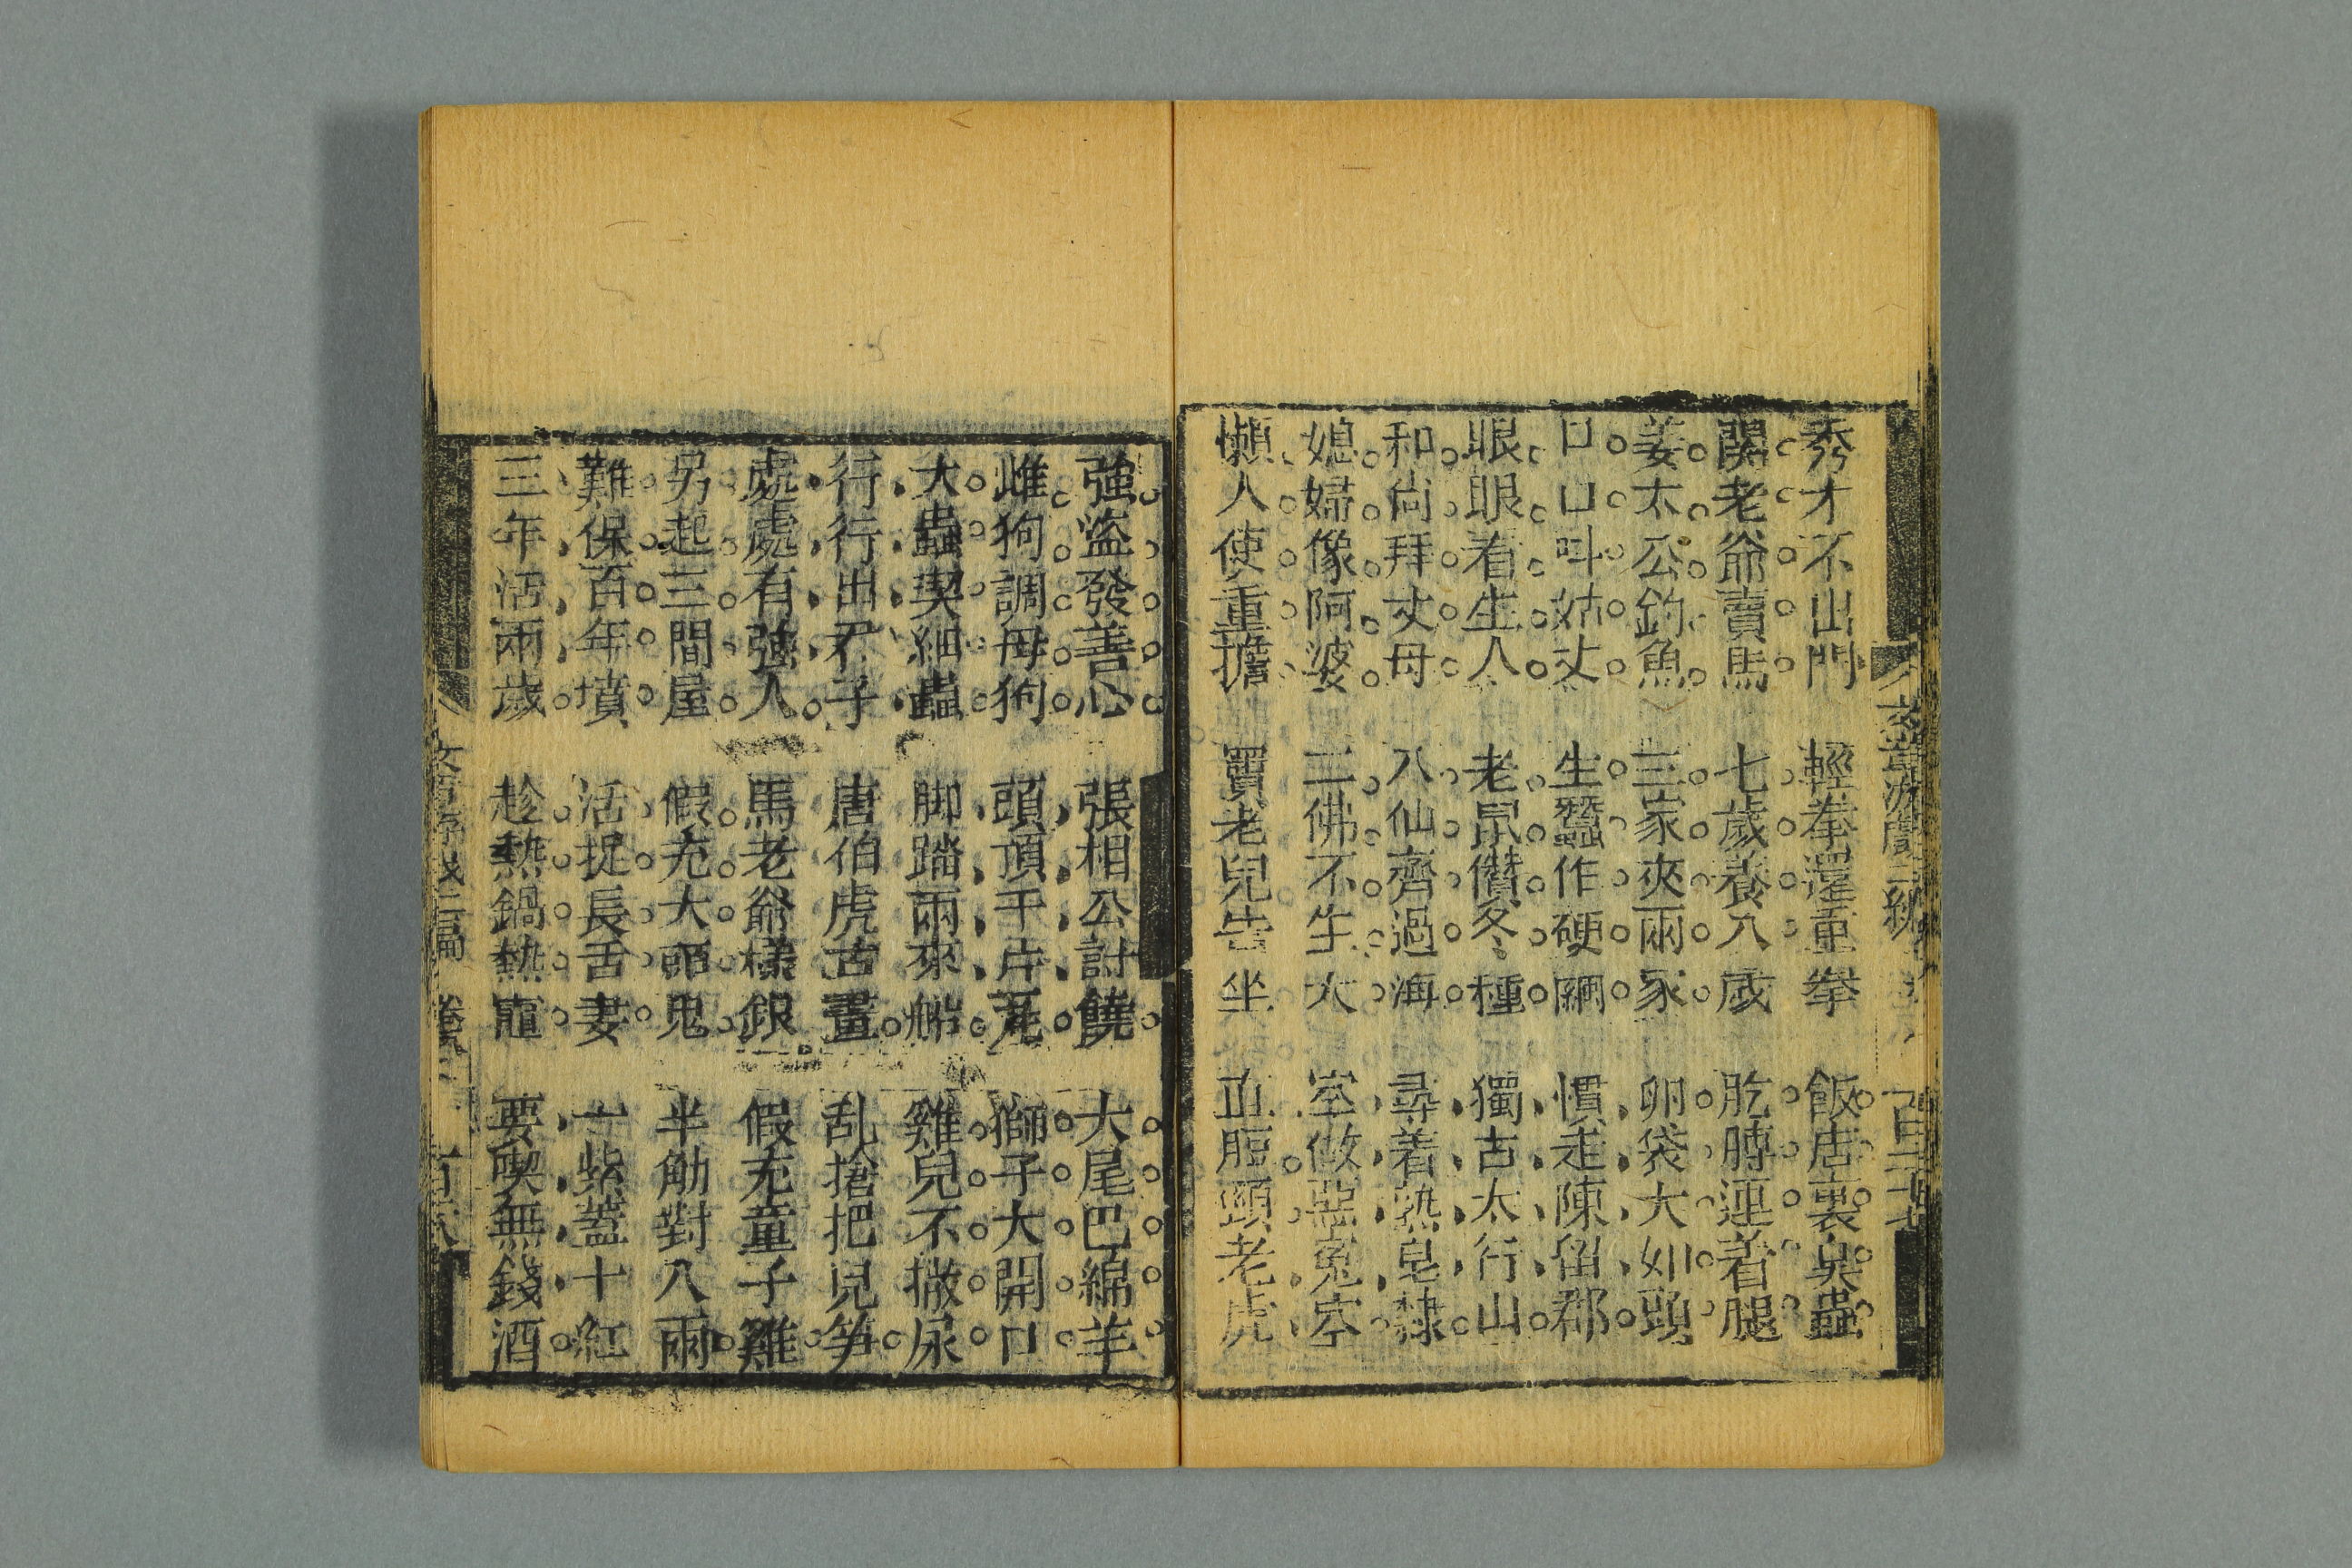 秀才不出門 輕拳還重拳 飯店裏臭蟲
関老爺賣馬 七歲養八歲 肐膊逕着腿
姜太公釣魚 三家夾兩家 卵袋大如頭
口口叫姑丈 生蠶作硬繭 慣走陳留郡
眼眼着生人 老鼠儹冬種 獨古太行山
和尙拜丈母 八仙齊過海 尋着熟皂隸
媳婦像阿婆 二佛不生大 室做惡寃家
懶人使重擔 賣老兒告坐 山脰頸老虎
強盜發善心 張相公討饒 大尾巴綿羊
雌狗調母狗 頭頂千斤 獅子大開口
大蟲喫細蟲 脚踏兩來船 雞兒不撒尿
行行出君子 唐伯虎古畫 乱搶把兒笋
處處有強人 馬老爺樣銀 假充童子雞
另起三間屋 假充大頭鬼 半觔對八兩
難保百年墳 活捉長舌妻 一紫蓋十紅
三年活兩歲 趁熱鍋熱竈 要喫無錢酒